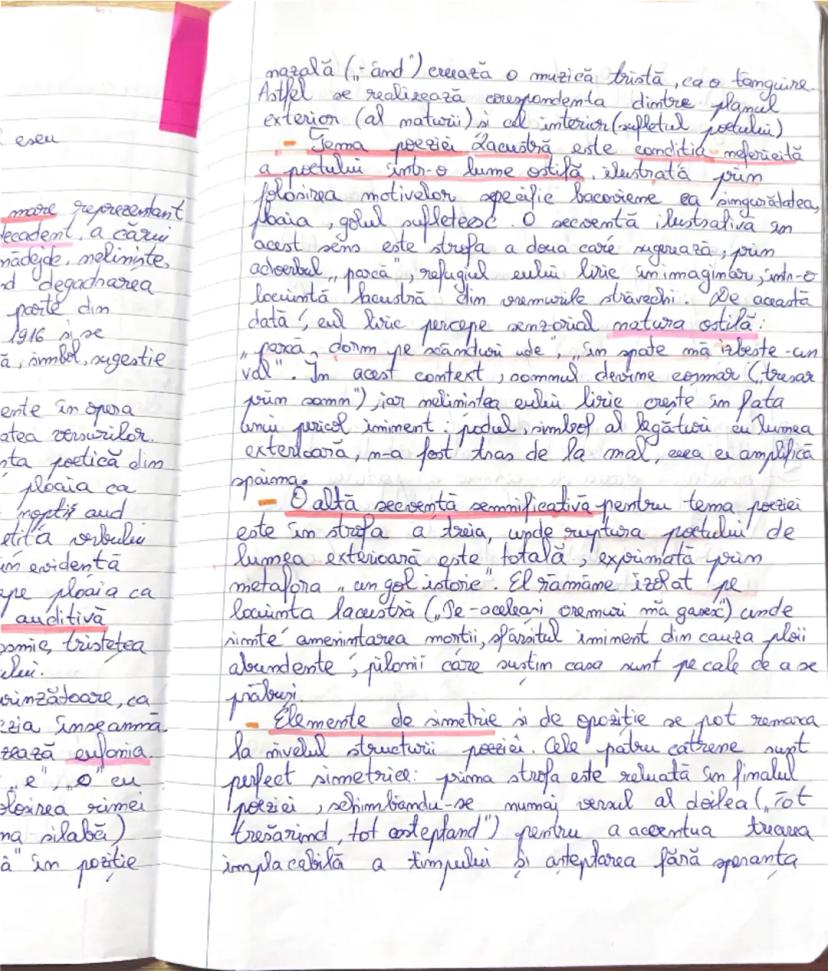 eseu
mare reprezentant
decadent, a cărui
nădejde, neliniște,
degadnarea
parte din
1916 și se
ă, simbol, sugestie
ente în opera
atea versurilor.
ta poetică din
ploaia ca
nopți aud
etiția verbului
în evidență
pe ploaia ca
auditivă
osmic, tristețea
ului.
prinzătoare, ca
zia înseamnă
zează eufonia
„e", „o" cu
olosirea rimei
na silabă)
ă" în poziție
nazală („-ând") creează o muzică tristă, ca o tânguire.
Astfel se realizează corespondența dintre planul
exterior (al naturii) și cel interior (sufletul poetului)
- Tema poeziei Lacustră este condiția nefericită
a poetului într-o lume ostilă, ilustrată prin
folosirea motivelor specific bacoviene ca singurătatea,
ploaia, golul sufletesc. O secvență ilustrativă în
acest sens este strofa a doua care sugerează, prin
adverbul „parcă", refugiul eului liric în imaginar, într-o
locuință lacustră din vremurile străvechi. De această
dată, eul liric percepe senzorial natura ostilă:
„parcă dorm pe scânduri ude", „în spate mă izbește-un
val". În acest context, somnul devine coșmar („tresar
prin somn"), iar neliniștea eului liric crește în fața
unui pericol iminent: podul, simbol al legături cu lumea
exterioară, n-a fost tras de la mal, ceea ce amplifică
spaima.
- O altă secvență semnificativă pentru tema poeziei
este în strofa a treia, unde ruptura poetului de
lumea exterioară este totală, exprimată prin
metafora „un gol istoric". El rămâne izolat pe
locuința lacustră („Pe-aceleași vremuri mă gasesc") unde
simte amenințarea morții, sfârșitul iminent din cauza ploii
abundente, pilonii care susțin casa sunt pe cale de a se
prăbuși.
- Elemente de simetrie și de opoziție se pot remarca
la nivelul structurii poeziei. Cele patru catrene sunt
perfect simetrice: prima strofa este reluată în finalul
poeziei, schimbându-se numai versul al doilea („Tot
tresărind, tot așteptând") pentru a accentua trecerea
implacabilă a timpului și așteptarea fără speranța